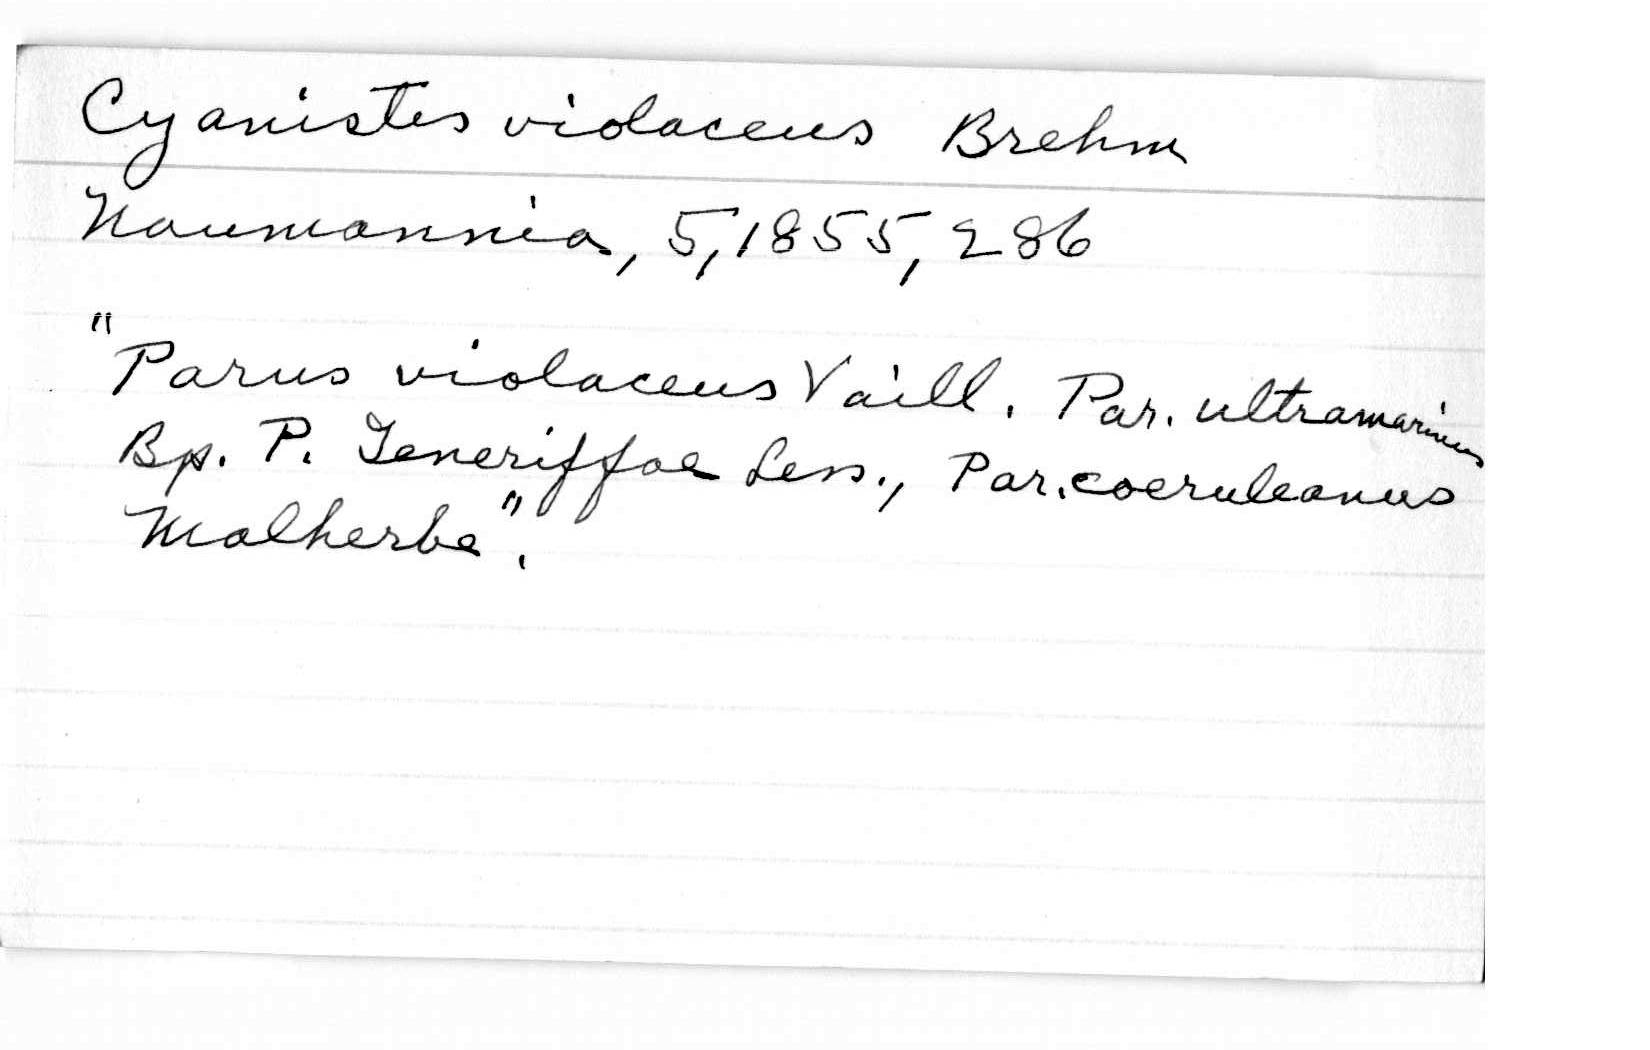 Cyanistes violaceus Brehm
Naumannia, 5, 1855, 286
"Parus violaceus Vaill. Par. ultramarinus
Bp. P. Teneriffae Less., Par. coeruleanus
Malherbe".